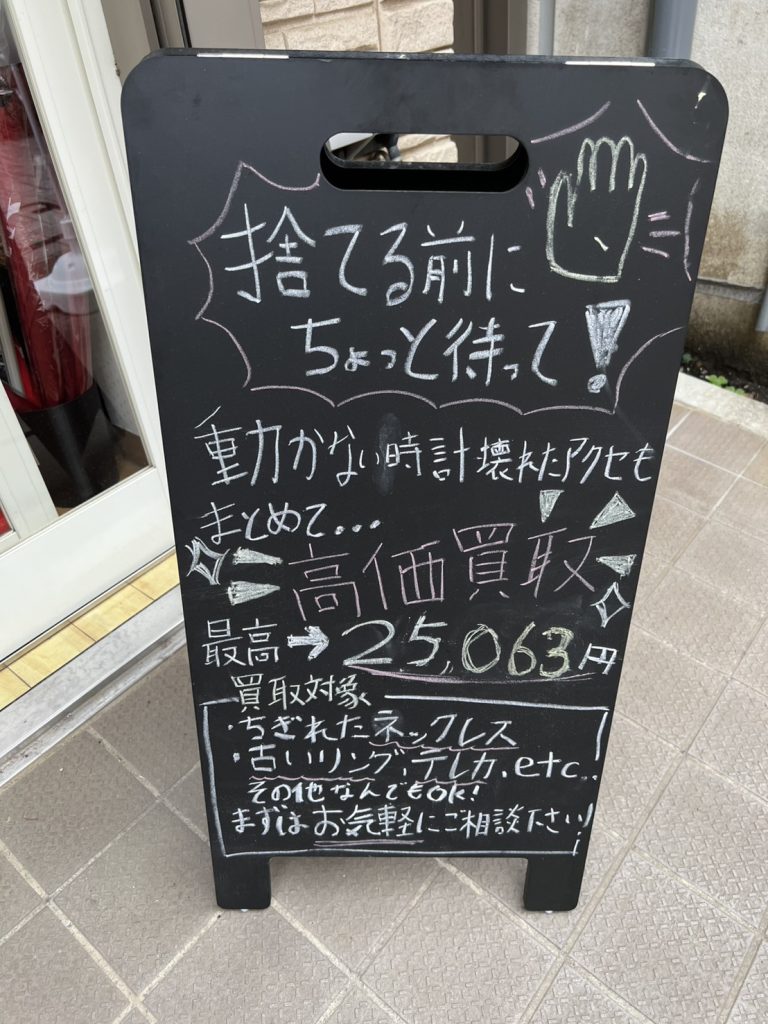 捨てる前に
ちょっと待って!
動かない時計壊れたアクセも
まとめて...
高価買取
最高➡25,063円
買取対象
・ちぎれたネックレス
・古いリング、テレカ、etc..
その他なんでもOK!
まずはお気軽にご相談下さい!